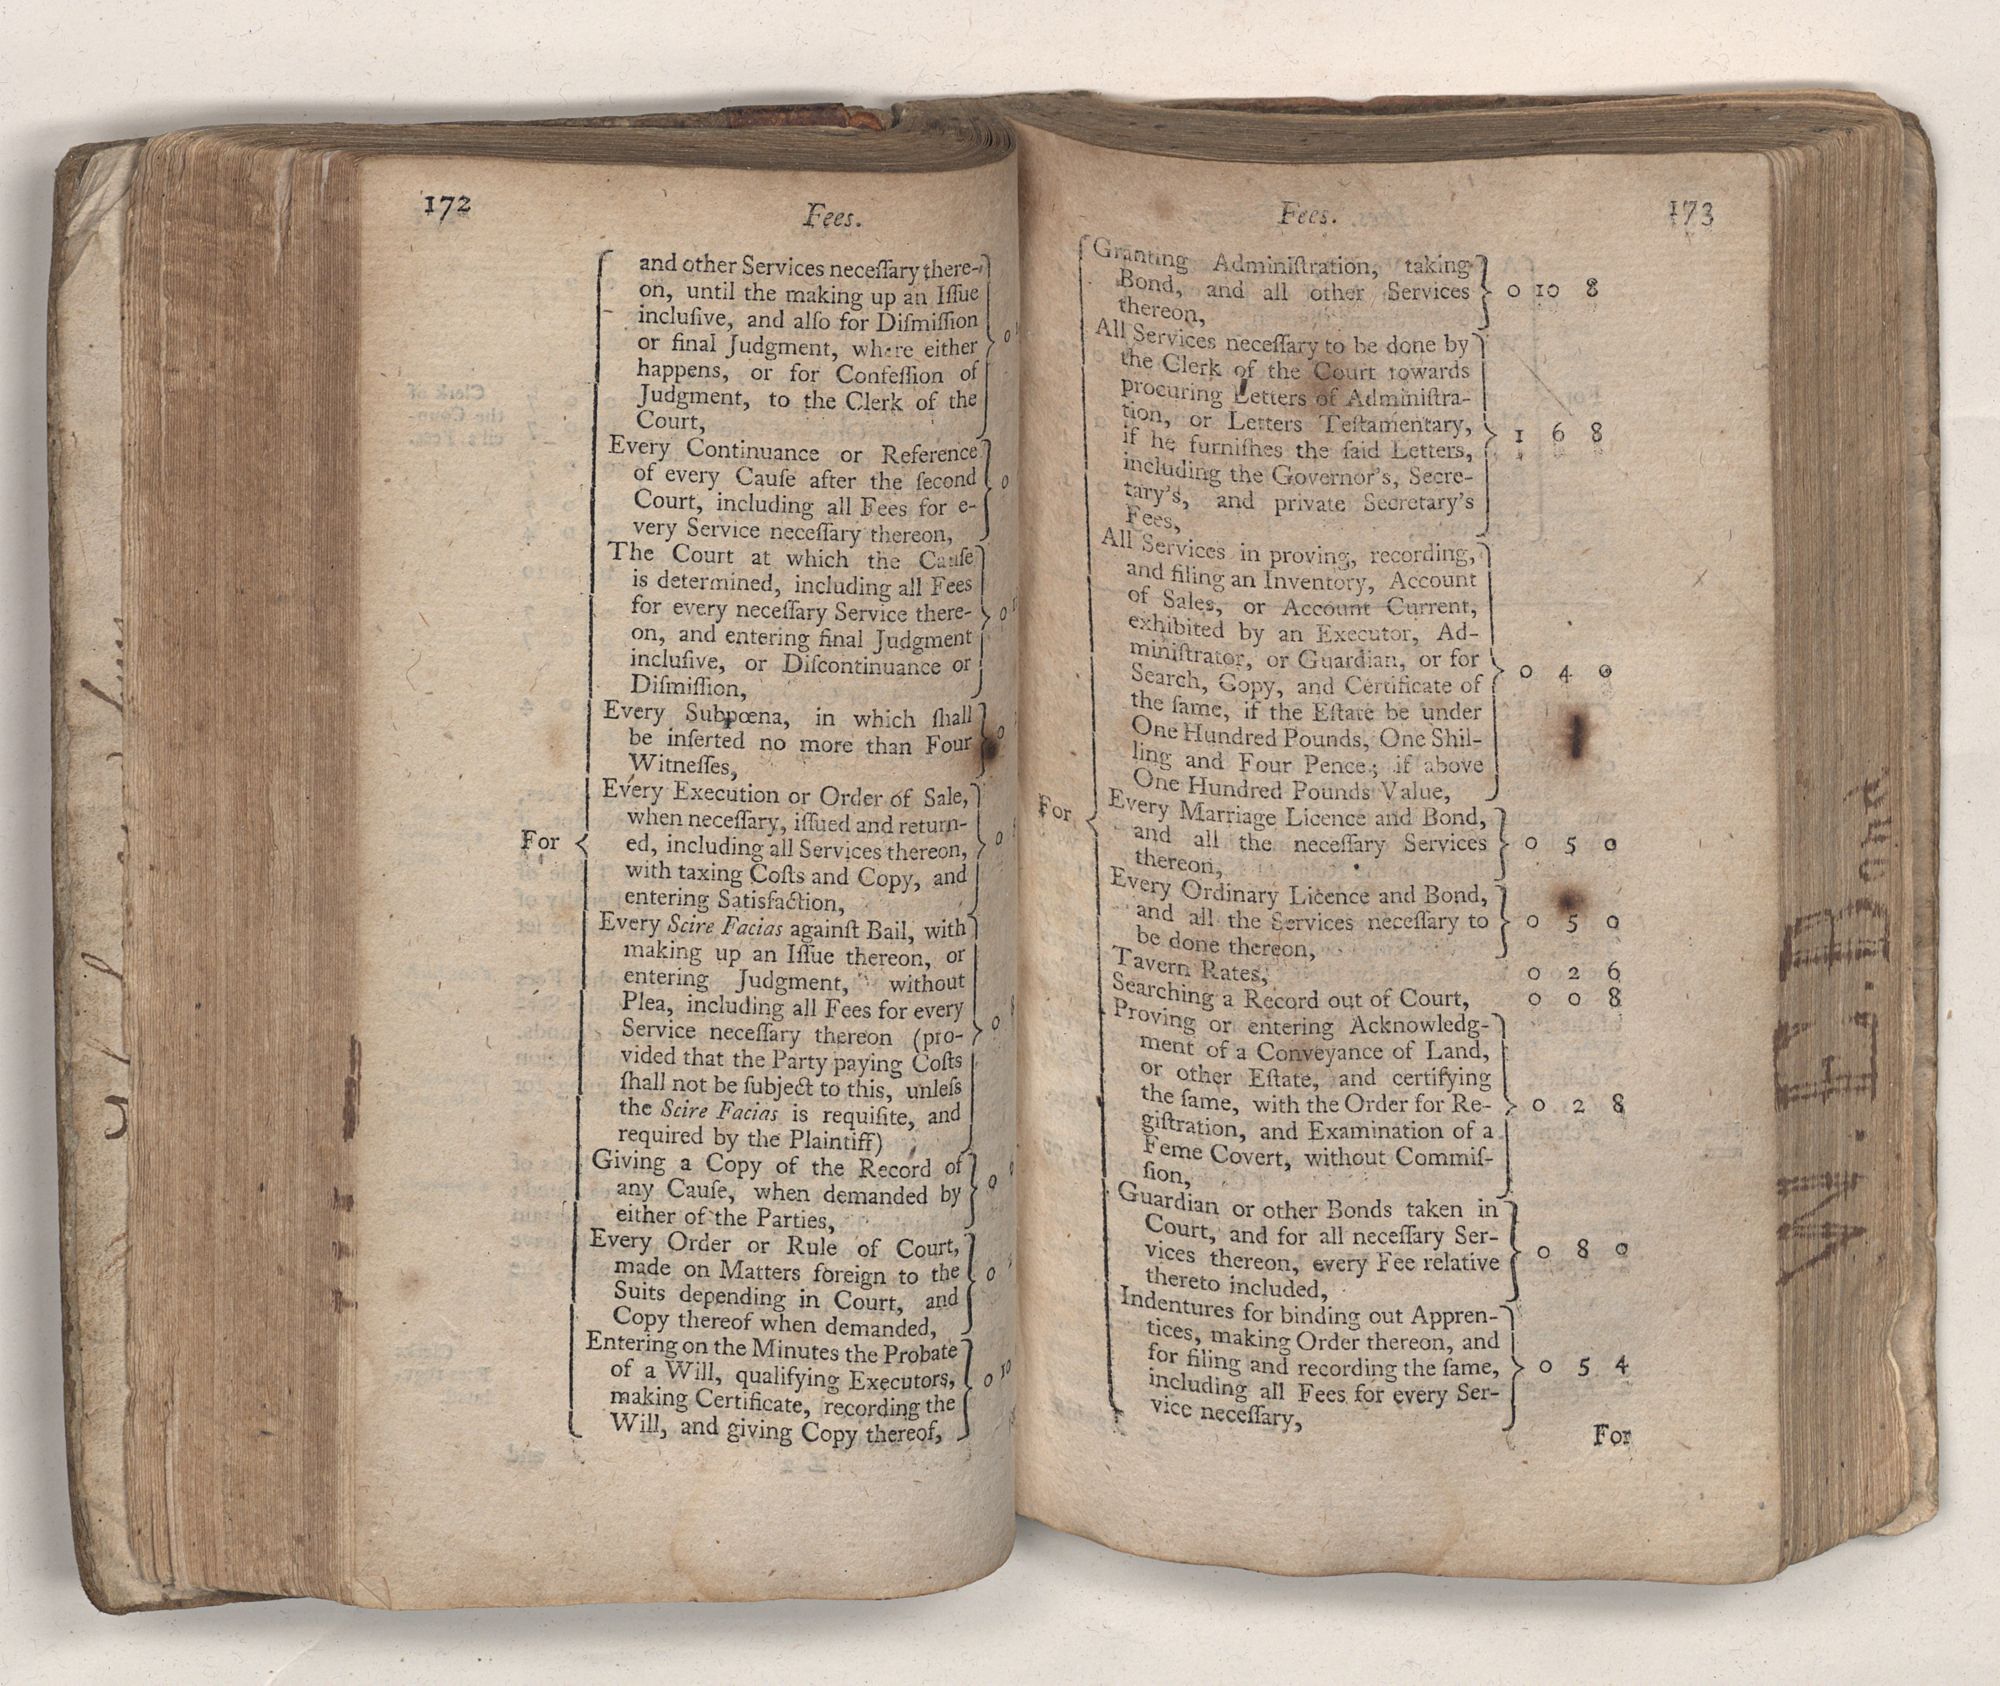 172
Fees.
and other Services neceſſary there-
on, until the making up an Iſſue
incluſive, and alſo for Diſmiſſion
or final Judgment, where either
happens, or for Confeſſion of
Judgment, to the Clerk of the
Court,
0
Every Continuance or Reference
of every Cauſe after the ſecond
Court, including all Fees for e-
very Service neceſſary thereon,
0
The Court at which the Cauſe
is determined, including all Fees
for every neceſſary Service there-
on, and entering final Judgment
incluſive, or Diſcontinuance or
Diſmiſſion,
0
Every Subpœna, in which ſhall
be inſerted no more than Four
Witneſſes,
0
For
Every Execution or Order of Sale,
when neceſſary, iſſued and return-
ed, including all Services thereon,
with taxing Coſts and Copy, and
entering Satisfaction,
0
Every Scire Facias againſt Bail, with
making up an Iſſue thereon, or
entering Judgment, without
Plea, including all Fees for every
Service neceſſary thereon (pro-
vided that the Party paying Coſts
ſhall not be ſubject to this, unleſs
the Scire Facias is requiſite, and
required by the Plaintiff)
0
Giving a Copy of the Record of
any Cauſe, when demanded by
either of the Parties,
0
Every Order or Rule of Court,
made on Matters foreign to the
Suits depending in Court, and
Copy thereof when demanded,
0
Entering on the Minutes the Probate
of a Will, qualifying Executors,
making Certificate, recording the
Will, and giving Copy thereof,
0 10
Fees.
173
Granting Adminiſtration, taking
Bond, and all other Services
thereon,
0 10 8
All Services neceſſary to be done by
the Clerk of the Court towards
procuring Letters of Adminiſtra-
tion, or Letters Teſtamentary,
if he furniſhes the ſaid Letters,
including the Governor's, Secre-
tary's, and private Secretary's
Fees,
1 6 8
All Services in proving, recording,
and filing an Inventory, Account
of Sales, or Account Current,
exhibited by an Executor, Ad-
miniſtrator, or Guardian, or for
Search, Copy, and Certificate of
the ſame, if the Eſtate be under
One Hundred Pounds, One Shil-
ling and Four Pence; if above
One Hundred Pounds Value,
0 4 0
For
Every Marriage Licence and Bond,
and all the neceſſary Services
thereon,
0 5 0
Every Ordinary Licence and Bond,
and all the Services neceſſary to
be done thereon,
0 5 0
Tavern Rates, 0 2 6
Searching a Record out of Court, 0 0 8
Proving or entering Acknowledg-
ment of a Conveyance of Land,
or other Eſtate, and certifying
the ſame, with the Order for Re-
giſtration, and Examination of a
Feme Covert, without Commiſ-
ſion,
0 2 8
Guardian or other Bonds taken in
Court, and for all neceſſary Ser-
vices thereon, every Fee relative
thereto included,
0 8 0
Indentures for binding out Appren-
tices, making Order thereon, and
for filing and recording the ſame,
including all Fees for every Ser-
vice neceſſary,
0 5 4
For